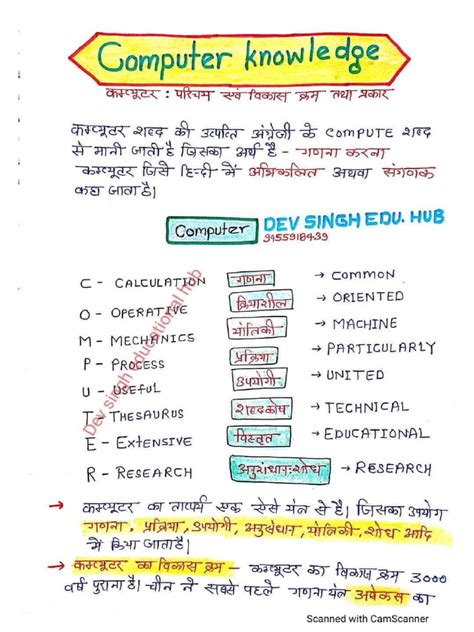 Computer knowledge
कम्प्यूटर : परिचय एवं विकास क्रम तथा प्रकार
कम्प्यूटर शब्द की उत्पत्ति अंग्रेजी के COMPUTE शब्द
से मानी जाती है जिसका अर्थ है - गणना करना
कम्प्यूटर जिसे हिन्दी में अभिकलित्र अथवा संगणक
कहा जाता है।
Computer DEV SINGH EDU. HUB
3955918439
C - CALCULATION गणना → COMMON
O - OPERATIVE क्रियाशील → ORIENTED
M - MECHANICS यांत्रिकी → MACHINE
P - PROCESS प्रक्रिया → PARTICULARLY
U - USEFUL उपयोगी → UNITED
T - THESAURUS शब्दकोष → TECHNICAL
E - EXTENSIVE विस्तृत → EDUCATIONAL
R - RESEARCH अनुसंधान:शोध → RESEARCH
Dev singh educational hub
→ कम्प्यूटर का तात्पर्य एक ऐसे यंत्र से है। जिसका उपयोग
गणना, प्रक्रिया, उपयोगी, अनुसंधान, यांत्रिकी, शोध आदि
में किया जाता है।
→ कम्प्यूटर का विकास क्रम - कम्प्यूटर का विकास क्रम 3000
वर्ष पुराना है। चीन ने सबसे पहले गणना यंत्र अबेकस का
Scanned with CamScanner